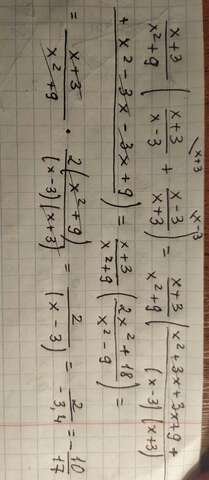 x+3/x²+9 ( x+3/x-3 ^(x+3) + x-3/x+3 ^(x-3) ) = x+3/x²+9 ( x²+3x+3x+9+/(x-3)(x+3)
+x²-3x-3x+9 ) = x+3/x²+9 ( 2x²+18/x²-9 ) =
= x+3/x²+9 · 2(x²+9)/(x-3)(x+3) = 2/(x-3) = 2/-3,4 = -10/17